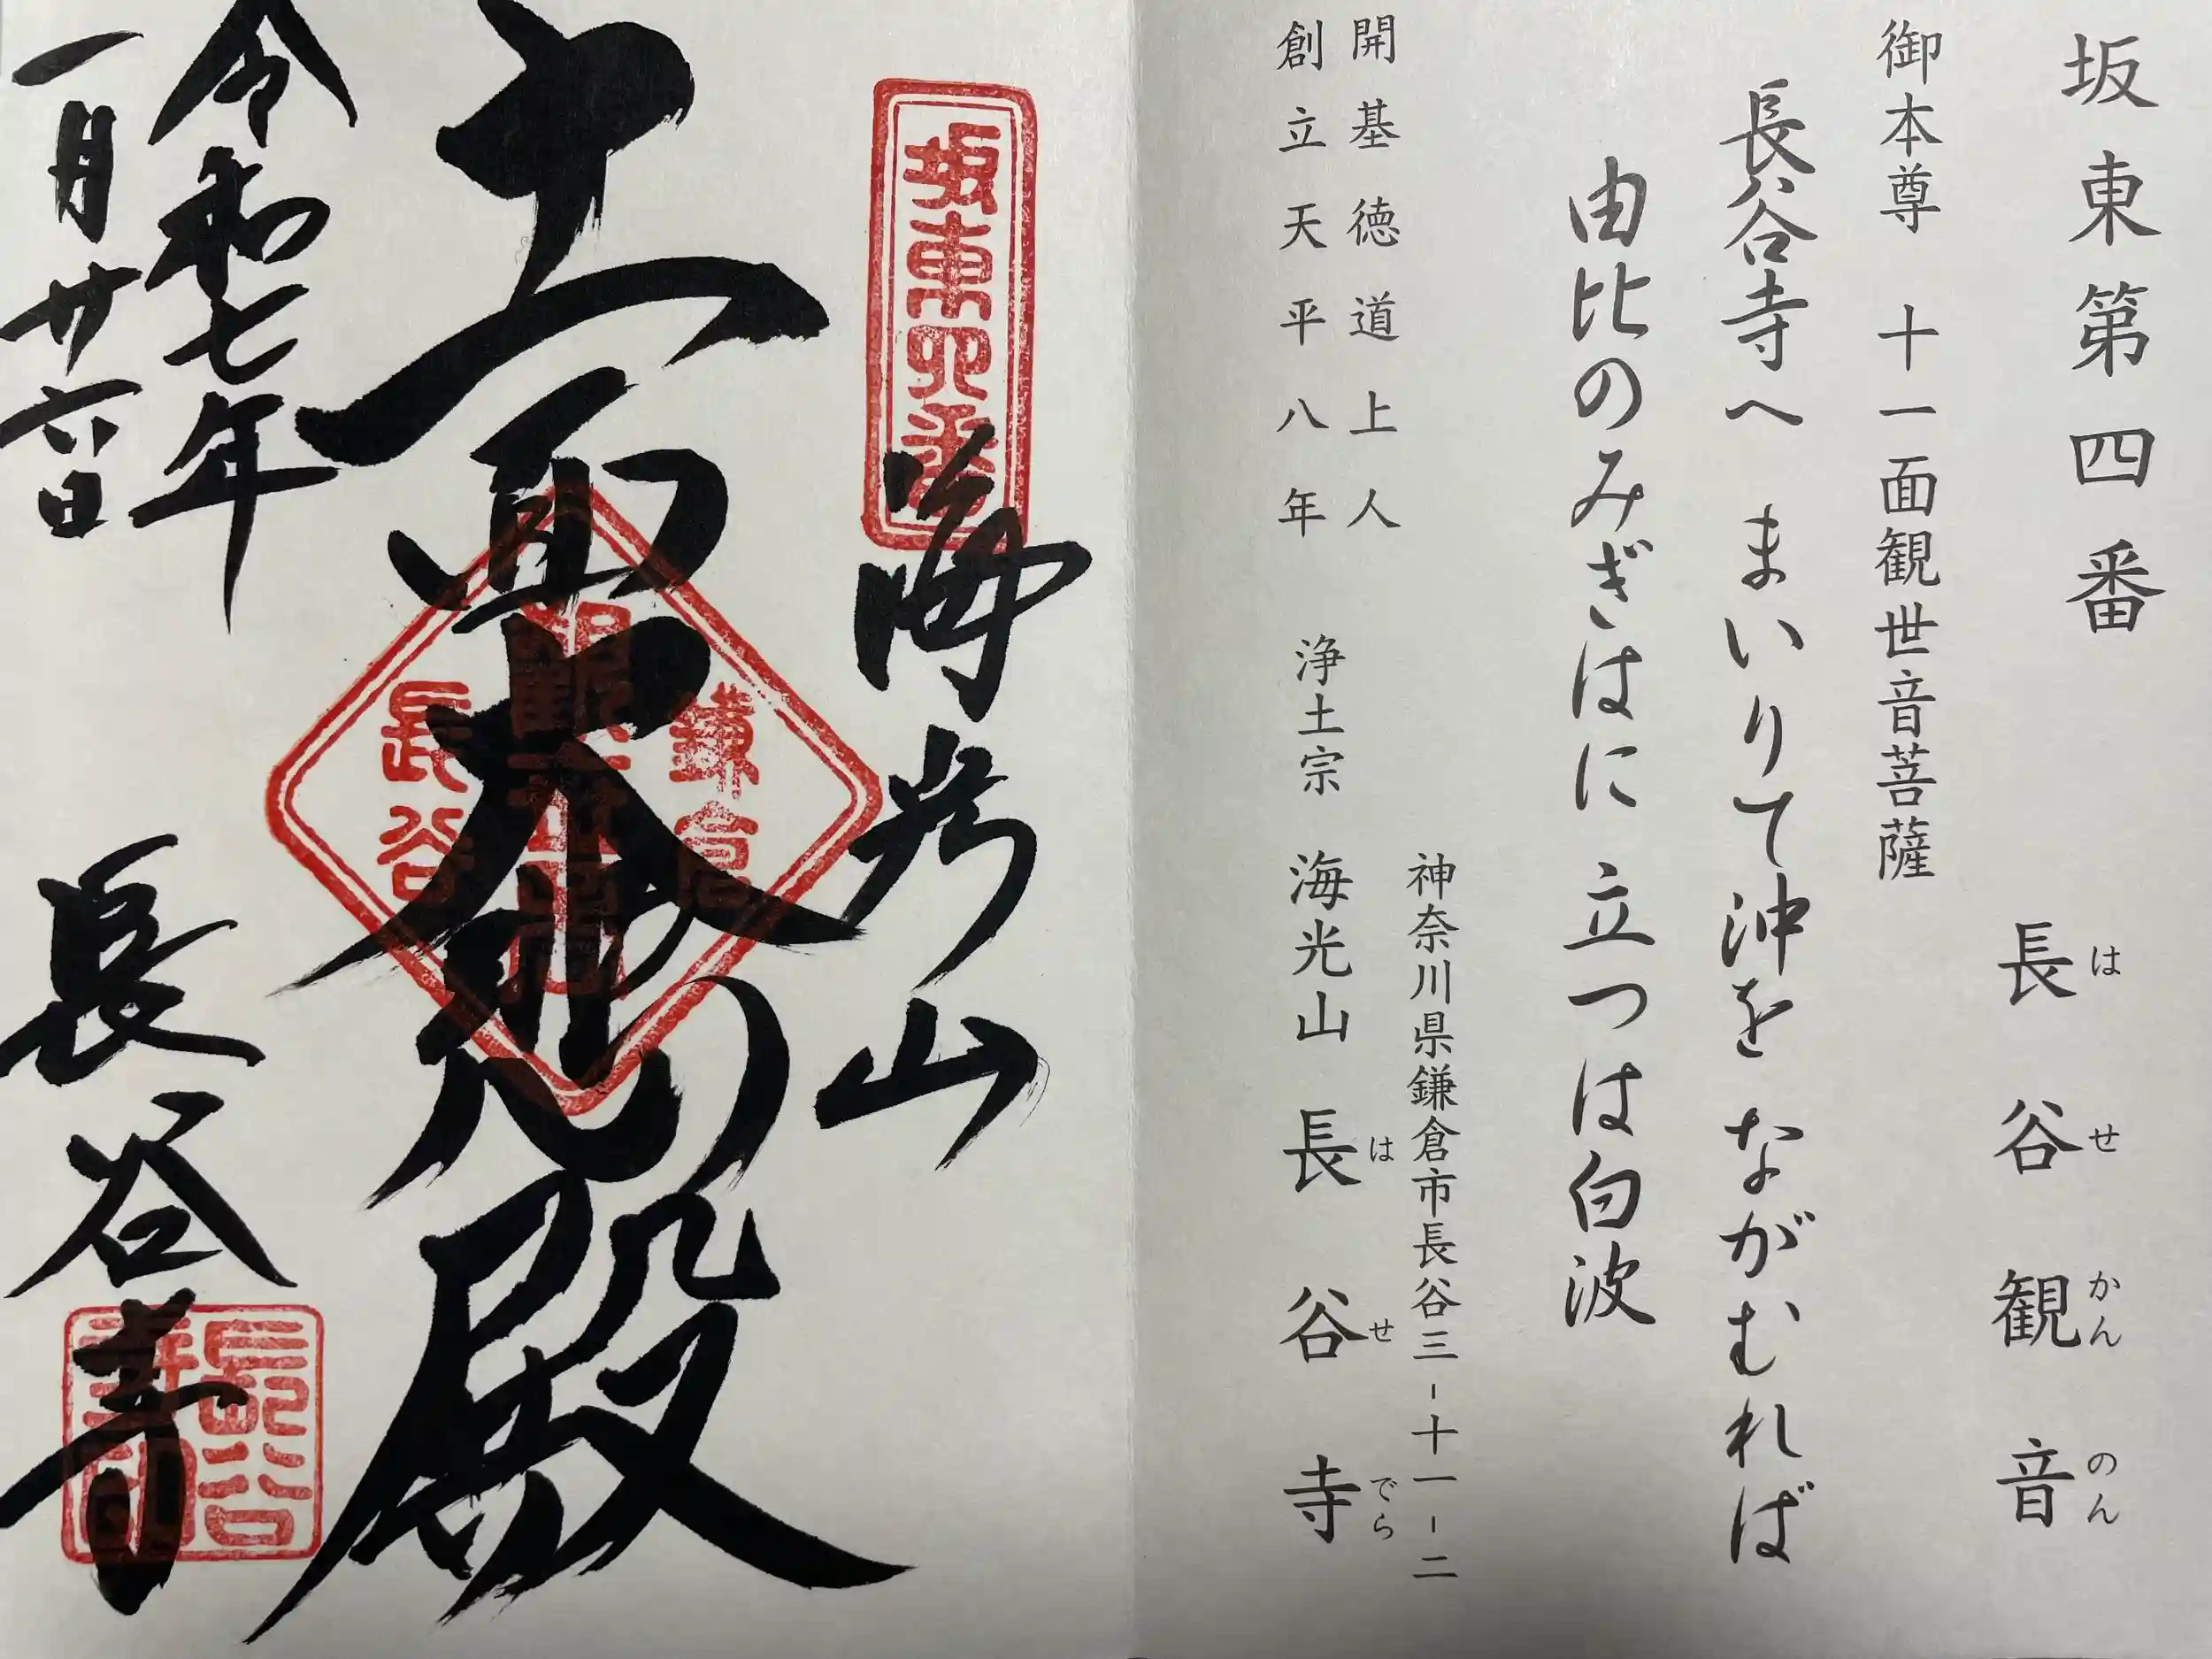 坂東第四番
長谷観音
はせかんのん
御本尊 十一面観世音菩薩
長谷寺へ まいりて沖を ながむれば
由比のみぎはに 立つは白波
神奈川県鎌倉市長谷三-十一-二
開基徳道上人
創立天平八年
浄土宗 海光山 長谷寺
はせでら
坂東四番
海光山
十一面大悲殿
鎌倉
長谷
令和七年
一月廿六日
長谷寺
長谷
寺印